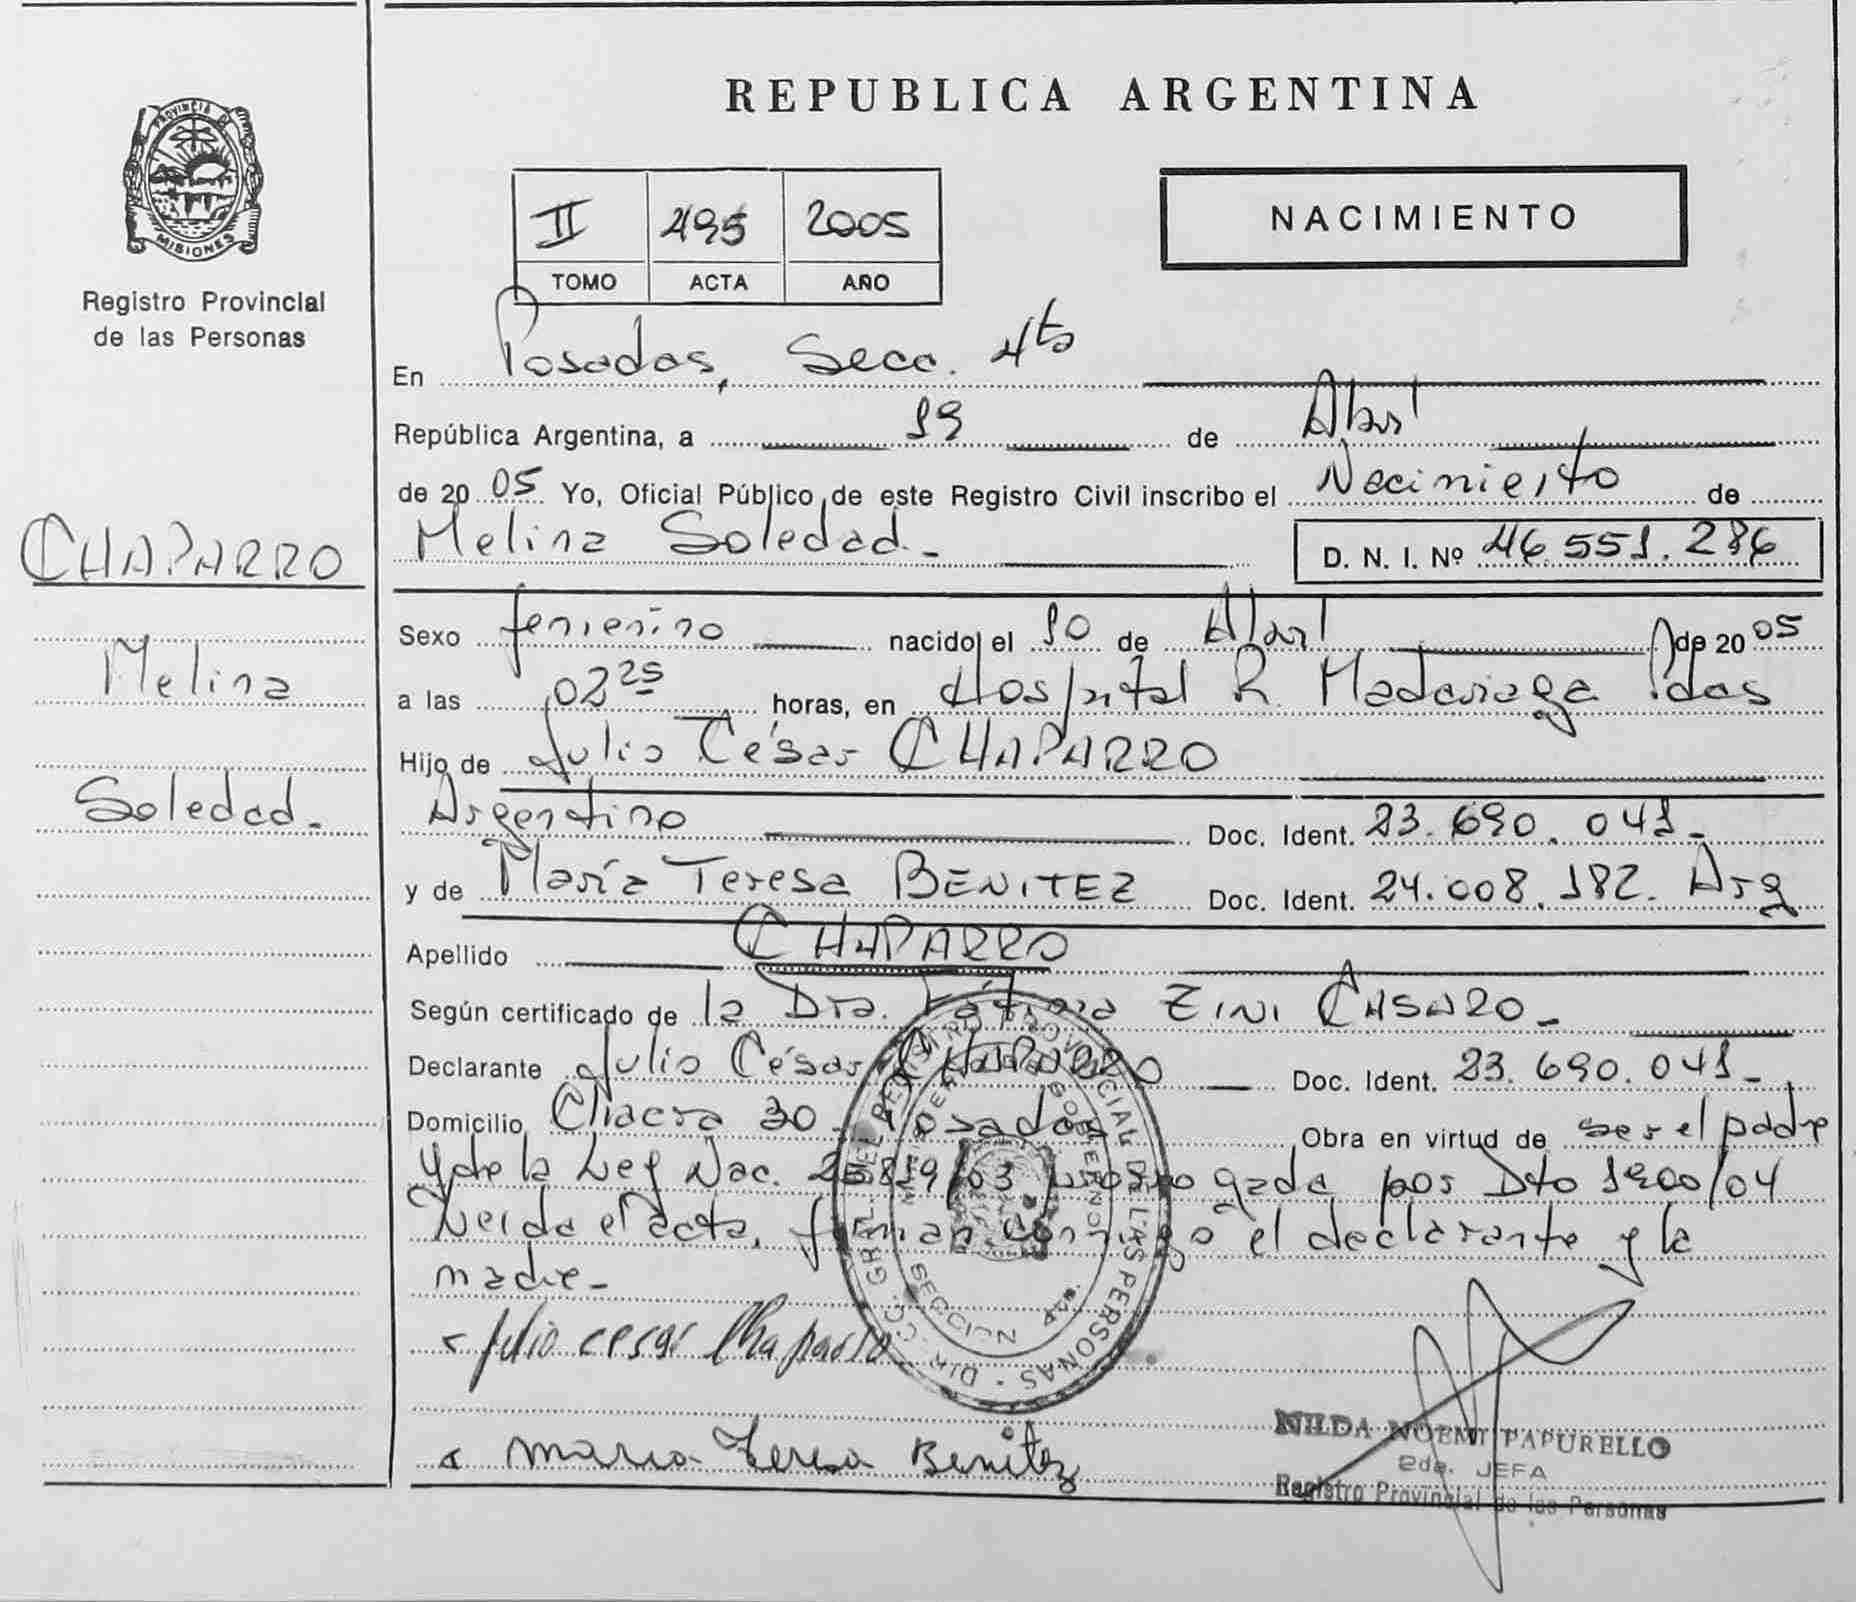 REPUBLICA ARGENTINA
PROVINCIA DE
MISIONES
Registro Provincial
de las Personas
II 495 2005
TOMO ACTA AÑO
NACIMIENTO
En Posadas, Secc. 4ta
República Argentina, a 19 de Abril
de 2005 Yo, Oficial Público de este Registro Civil inscribo el Nacimiento de
Melina Soledad.- D. N. I. Nº 46.551.286
CHAPARRO
Melina
Soledad.-
Sexo femenino nacido el 10 de Abril de 2005
a las 02 25 horas, en Hospital R. Madariaga Pdas
Hijo de Julio César CHAPARRO
Argentino Doc. Ident. 23.690.041-
y de María Teresa BENITEZ Doc. Ident. 24.008.182. Arg
Apellido CHAPARRO
Según certificado de la Dra. Fátima ZINI CASARO-
Declarante Julio César CHAPARRO Doc. Ident. 23.690.041-
Domicilio Chacra 30- Posadas Obra en virtud de ser el padre
y de la Ley Nac. 25819/03 prorrogada por Dto 1900/04
Leida el acta, firman conmigo el declarante y la
madre-
Julio cesar Chaparro
Maria Teresa Benitez
DIR. GRAL. DEL REGISTRO PROVINCIAL DE LAS PERSONAS
MINISTERIO DE GOBIERNO
NILDA NOEMI PAPURELLO
2da. JEFA
Registro Provincial de las Personas